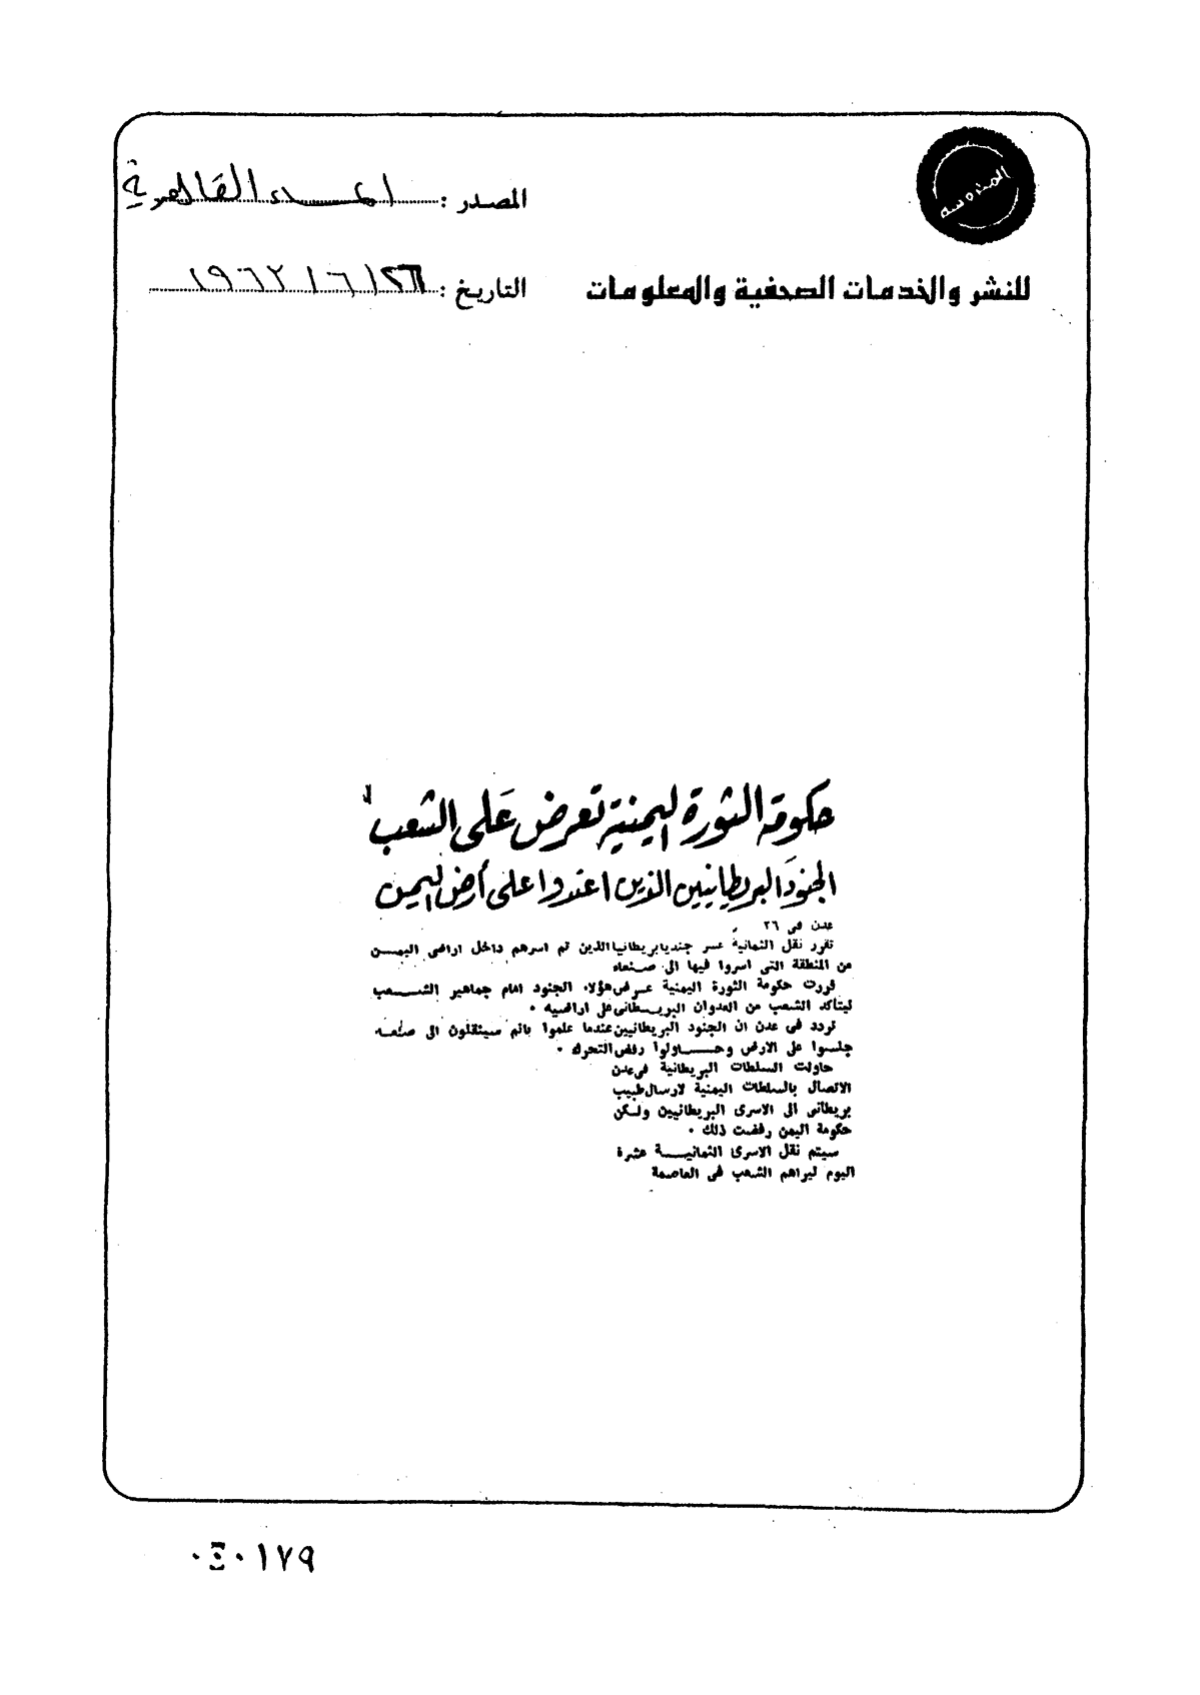 المحروسة
المصدر : المساء القاهرية
للنشر والخدمات الصحفية والمعلومات
التاريخ : ٢٦ / ٦ / ١٩٦٢
حكومة الثورة اليمنية تعرض على الشعب
الجنود البريطانيين الذين اعتدوا على أرض اليمن
عدن فى ٢٦
تقرر نقل الثمانية عسر جنديا بريطانيا الذين تم اسرهم داخل اراضى اليمــن
من المنطقة التى اسروا فيها الى صــنعاء
قررت حكومة الثورة اليمنية عــرض هؤلاء الجنود امام جماهير الشــعب
ليتأكد الشعب من العدوان البريــطانى على اراضيه .
تردد فى عدن ان الجنود البريطانيين عندما علموا بانهم سينقلون الى صنعــاء
جلسوا على الارض وحــاولوا رفض التحرك .
حاولت السلطات البريطانية فى عدن
الاتصال بالسلطات اليمنية لارسال طبيب
بريطانى الى الاسرى البريطانيين ولكن
حكومة اليمن رفضت ذلك .
سيتم نقل الاسرى الثمانيــة عشرة
اليوم ليراهم الشعب فى العاصمة
٠٤٠١٧٩